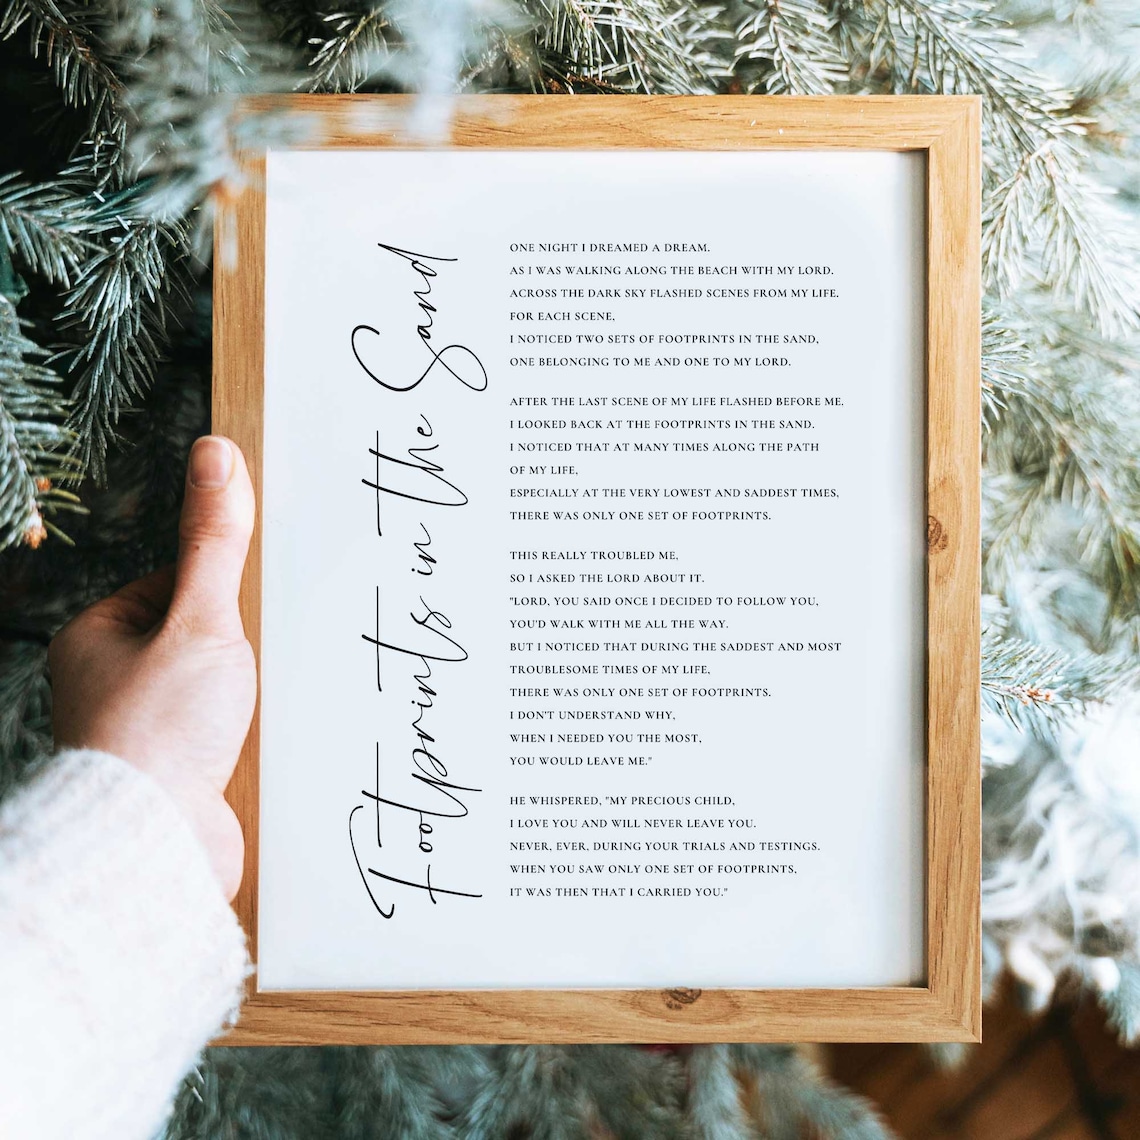 Footprints in the Sand
ONE NIGHT I DREAMED A DREAM.
AS I WAS WALKING ALONG THE BEACH WITH MY LORD.
ACROSS THE DARK SKY FLASHED SCENES FROM MY LIFE.
FOR EACH SCENE,
I NOTICED TWO SETS OF FOOTPRINTS IN THE SAND,
ONE BELONGING TO ME AND ONE TO MY LORD.
AFTER THE LAST SCENE OF MY LIFE FLASHED BEFORE ME,
I LOOKED BACK AT THE FOOTPRINTS IN THE SAND.
I NOTICED THAT AT MANY TIMES ALONG THE PATH
OF MY LIFE,
ESPECIALLY AT THE VERY LOWEST AND SADDEST TIMES,
THERE WAS ONLY ONE SET OF FOOTPRINTS.
THIS REALLY TROUBLED ME,
SO I ASKED THE LORD ABOUT IT.
"LORD, YOU SAID ONCE I DECIDED TO FOLLOW YOU,
YOU'D WALK WITH ME ALL THE WAY.
BUT I NOTICED THAT DURING THE SADDEST AND MOST
TROUBLESOME TIMES OF MY LIFE,
THERE WAS ONLY ONE SET OF FOOTPRINTS.
I DON'T UNDERSTAND WHY,
WHEN I NEEDED YOU THE MOST,
YOU WOULD LEAVE ME."
HE WHISPERED, "MY PRECIOUS CHILD,
I LOVE YOU AND WILL NEVER LEAVE YOU.
NEVER, EVER, DURING YOUR TRIALS AND TESTINGS.
WHEN YOU SAW ONLY ONE SET OF FOOTPRINTS,
IT WAS THEN THAT I CARRIED YOU."